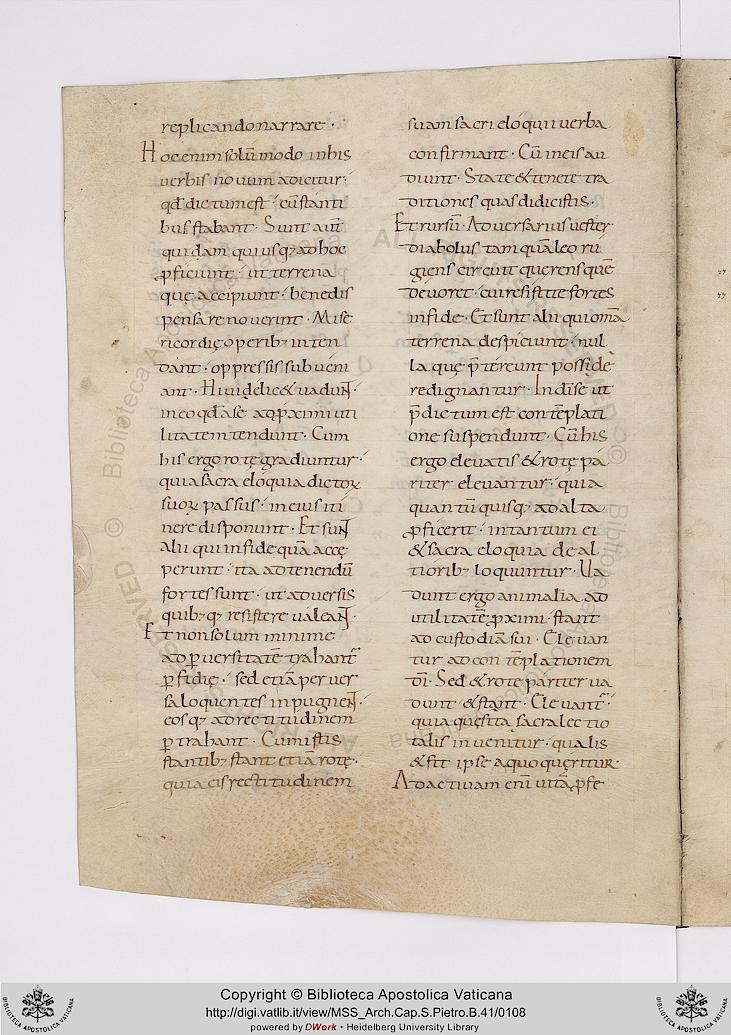 replicando narrare ·
Hoc enim solũmodo in his
uerbis nouum adicitur ·
qđ dictum est · cũ stanti
bus stabant · Sunt aut̃
quidam qui usq; ad hoc
ꝓficiunt · ut terrena
quę accipiunt · bene dis
pensare nouerint · Mise
ricordię operib; inten
dant · oppressis subueni
ant · Hi uidelic& uadunt ·
in eo qđ a se ad ꝓximi uti
litatem tendunt · Cum
his ergo rotę gradiuntur ·
quia sacra eloquia dictoꝝ
suoꝝ passus · in eius iti
nere disponunt · Et sunt
alii qui in fide quã acce
perunt · ita ad tenendũ
fortes sunt · ut aduersis
quib; q; resistere ualeant ·
Et non solum minime
ad ꝑuersitatẽ trahant̃
ꝑfidię · sed etiã peruer
sa loquentes inpugnent ·
eos q; ad rectitudinem
ꝑtrahant · Cum istis
stantib; stant etiã rotę ·
quia eis rectitudinem
suam sacri eloquii uerba
confirmant · Cũ in eis au
diunt · State & tenete tra
ditiones quas didicistis ·
Et rursũ · Aduersarius uester
diabolus tamquã leo ru
giens circuit querens quẽ
deuoret · cui resistite fortes
in fide · Et sunt alii qui om̃a
terrena despiciunt · nul
la quę p̃tereunt posside
re dignantur · In dĩ se ut
p̃dictum est contẽplati
one suspendunt · Cũ his
ergo eleuatis & rotę pa
riter eleuantur · quia
quantũ quisq; ad alta
ꝓficerit · in tantum ei
& sacra eloquia de al
tiorib; loquuntur · Ua
dunt ergo animalia ad
utilitatẽ ꝓximi · stant
ad custodiã sui · Eleuan
tur ad contẽplationem
dĩ · Sed & rotę pariter ua
dunt & stant · Eleuant̃ ·
quia quesita sacra lectio
talis inuenitur · qualis
& fit ipse a quo quęritur ·
Ad actiuam eni uitã ꝓfe
Copyright © Biblioteca Apostolica Vaticana
http://digi.vatlib.it/view/MSS_Arch.Cap.S.Pietro.B.41/0108
powered by DWork • Heidelberg University Library